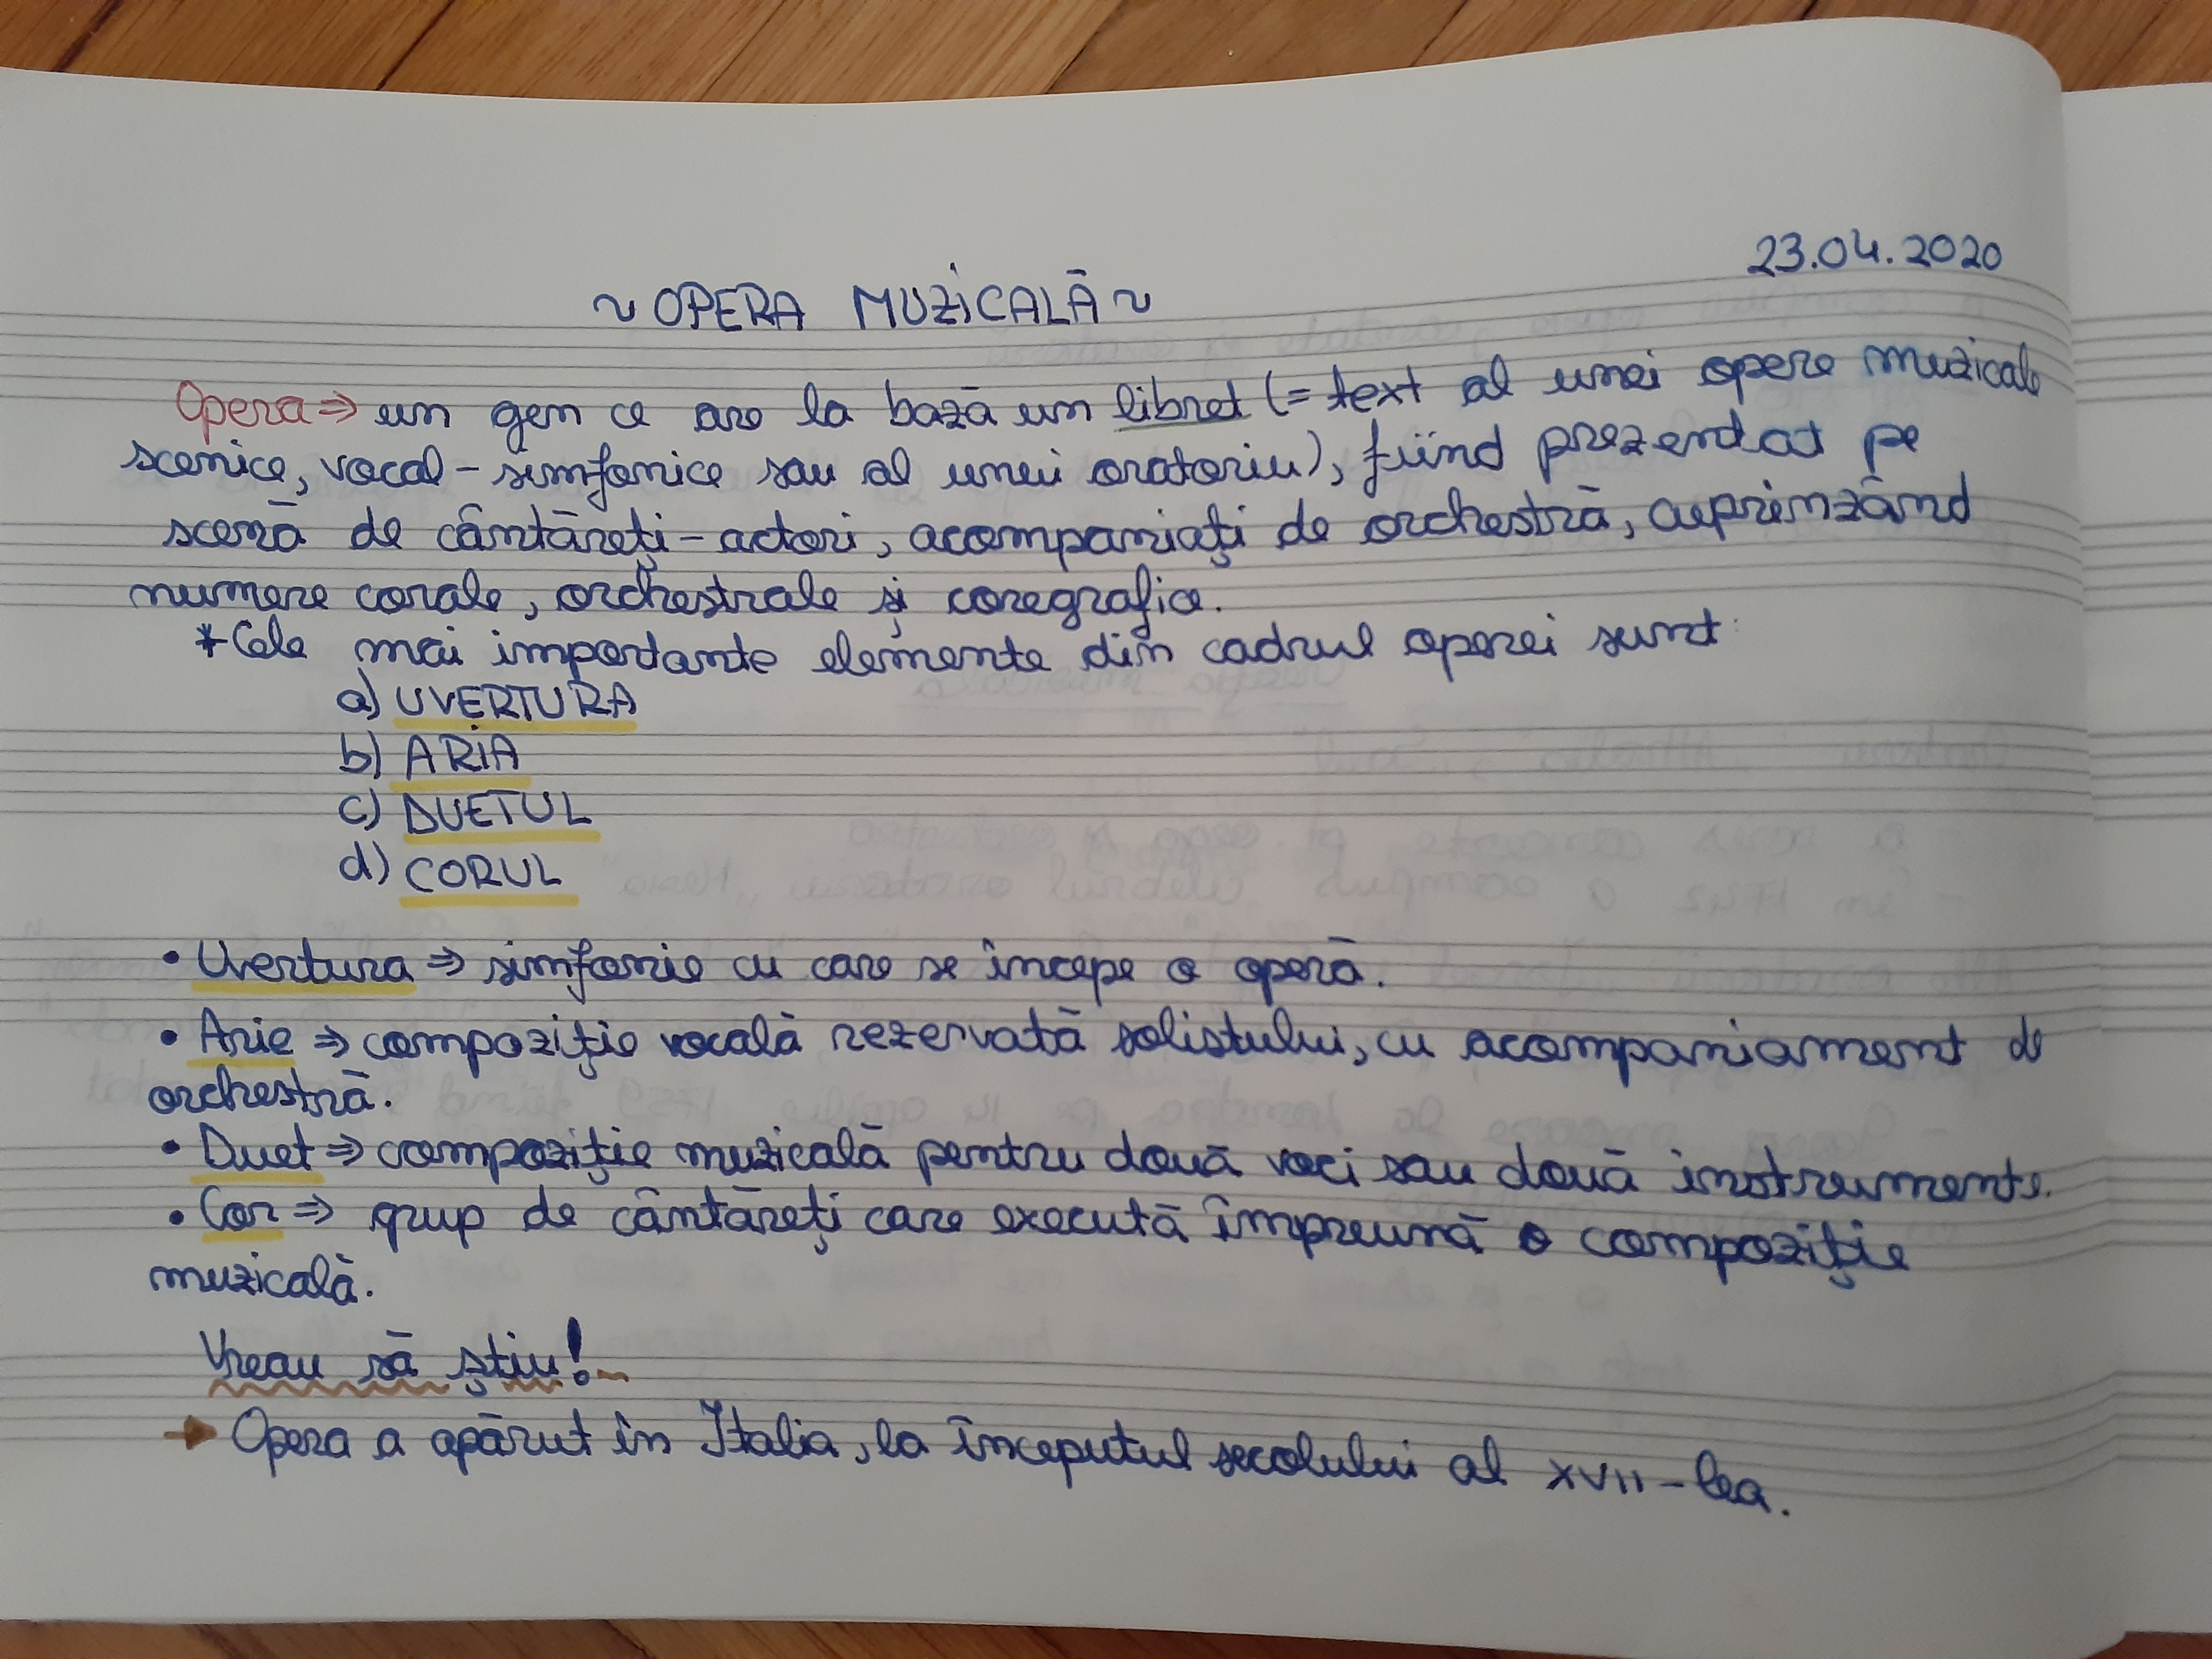 23.04.2020
~ OPERA MUZICALĂ ~
Opera => un gen ce are la bază un libret (= text al unei opere muzicale
scenice, vocal-simfonice sau al unei oratoriu), fiind prezentat pe
scenă de cântăreți-actori, acompaniați de orchestră, cuprinzând
numere corale, orchestrale și coregrafice.
* Cele mai importante elemente din cadrul operei sunt:
a) UVERTURA
b) ARIA
c) DUETUL
d) CORUL
• Uvertura => simfonie cu care se începe o operă.
• Arie => compoziție vocală rezervată solistului, cu acompaniament de
orchestră.
• Duet => compoziție muzicală pentru două voci sau două instrumente.
• Cor => grup de cântăreți care execută împreună o compoziție
muzicală.
Vreau să știu!
→ Opera a apărut în Italia, la începutul secolului al XVII-lea.